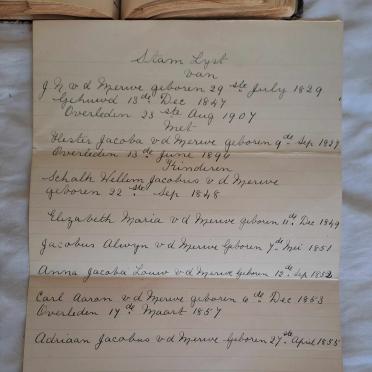 Stam Lyst
van
J. N. v d Merwe geboren 29 ste July 1829
Gehuwd 13 de Dec 1847
Overleden 23 ste Aug 1907
Met
Hester Jacoba v d Merwe geboren 9 de Sep 1827
Overleden 13 de June 1896
Kinderen
Schalk Willem Jacobus v d Merwe
geboren 22 ste Sep 1848
Elizabeth Maria v d Merwe geboren 11 de Dec 1849
Jacobus Alwyn v d Merwe geboren 7 de Mei 1851
Anna Jacoba Louw v d Merwe geboren 12 de Sep 1852
Carl Aaron v d Merwe geboren 6 de Dec 1853
Overleden 17 de Maart 1857
Adriaan Jacobus v d Merwe geboren 27 ste April 1855